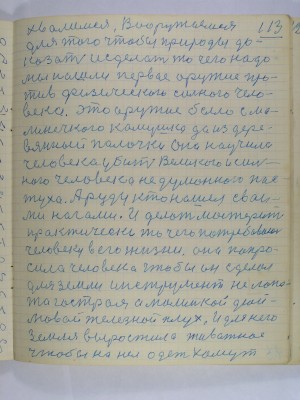 хвалимся, Вооружаемся
113
для того чтобы природы до-
казать и сделать то чего надо
мы нашли первое оружие про-
тив физического силного чело-
века. Это оружие было с ма-
линечкого камушка да из дере-
вянный палочки Она научила
человека убить Великого и сил-
ного человека не думанного пас-
туха. А руду кто нашел свои-
ми ногами. И делать мастерить
практически то чего потребовала
человеку в его жизни, она попро-
сила человека чтобы он сделал
для земли инструмент не лопа-
та гострая а машинкой
железной плуг, И для него
Земля выростила животное
чтобы на нея одеть Хамут